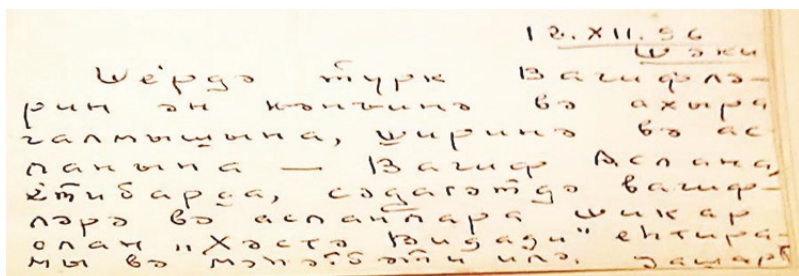 12.XII.96
Шәки
Шерда түрк Вагифлә-
рин ән кәнҹинә вә ахыра
галмышына, ширинә вә ас-
ланына — Вагиф Аслана,
е'тибарда, сәдагәтдә вагиф-
ләрә вә асланлара шикар
олан „Хәстә Видади" ентира-
мы вә мәһәббәти илә.